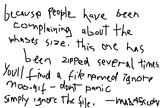 because people have been
complaining about the
whales size. this one has
been zipped several times
You'll find a file named ignore
moo.gif - dont panic
simply ignore the file.